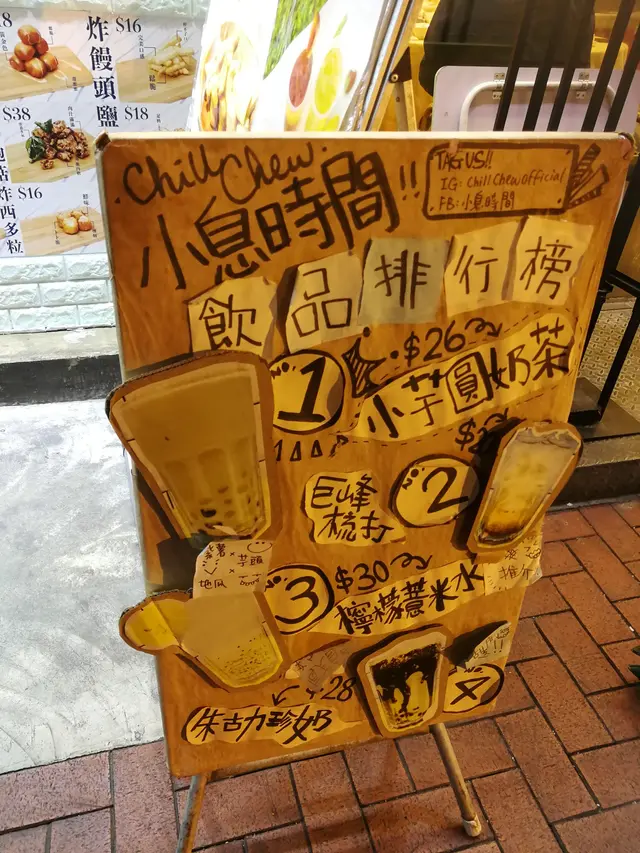 $16
炸饅頭鹽
$38
$18
$16
炸西多粒
Chill Chew.
小息時間!!
TAG US!!
IG: chillchewofficial
FB: 小息時間
飲品排行榜
1
$26
小芋圓奶茶
2
巨峰
梳打
紫薯
芋頭
地瓜
3
$30
檸檬薏米水
推介
4
28
朱古力珍奶